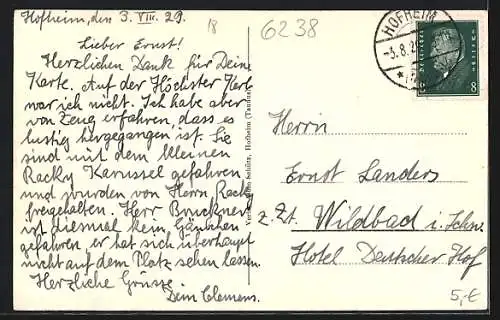 Hofheim, den 3. VIII. 29.
18
6238
Lieber Ernst!
Herzlichen Dank für Deine
Karte. Auf der Höchster Kerb
war ich nicht. Ich habe aber
von Zeug erfahren, dass es
lustig hergegangen ist. Sie
sind mit dem kleinen
Racky Karussel gefahren
und wurden von Herrn Racky
freigehalten. Herr Bruckner
ist diesmal kein
gefahren, er hat sich überhaupt
nicht auf dem Platz sehen lassen.
Herzliche Grüsse
Dein Clemens.
Hofheim (Taunus)
HOFHEIM
-3.8.29
DEUTSCHES REICH
8 8
Herrn
Ernst Landers
z. Zt. Wildbad i. Schw.
Hotel Deutscher Hof
5,-€